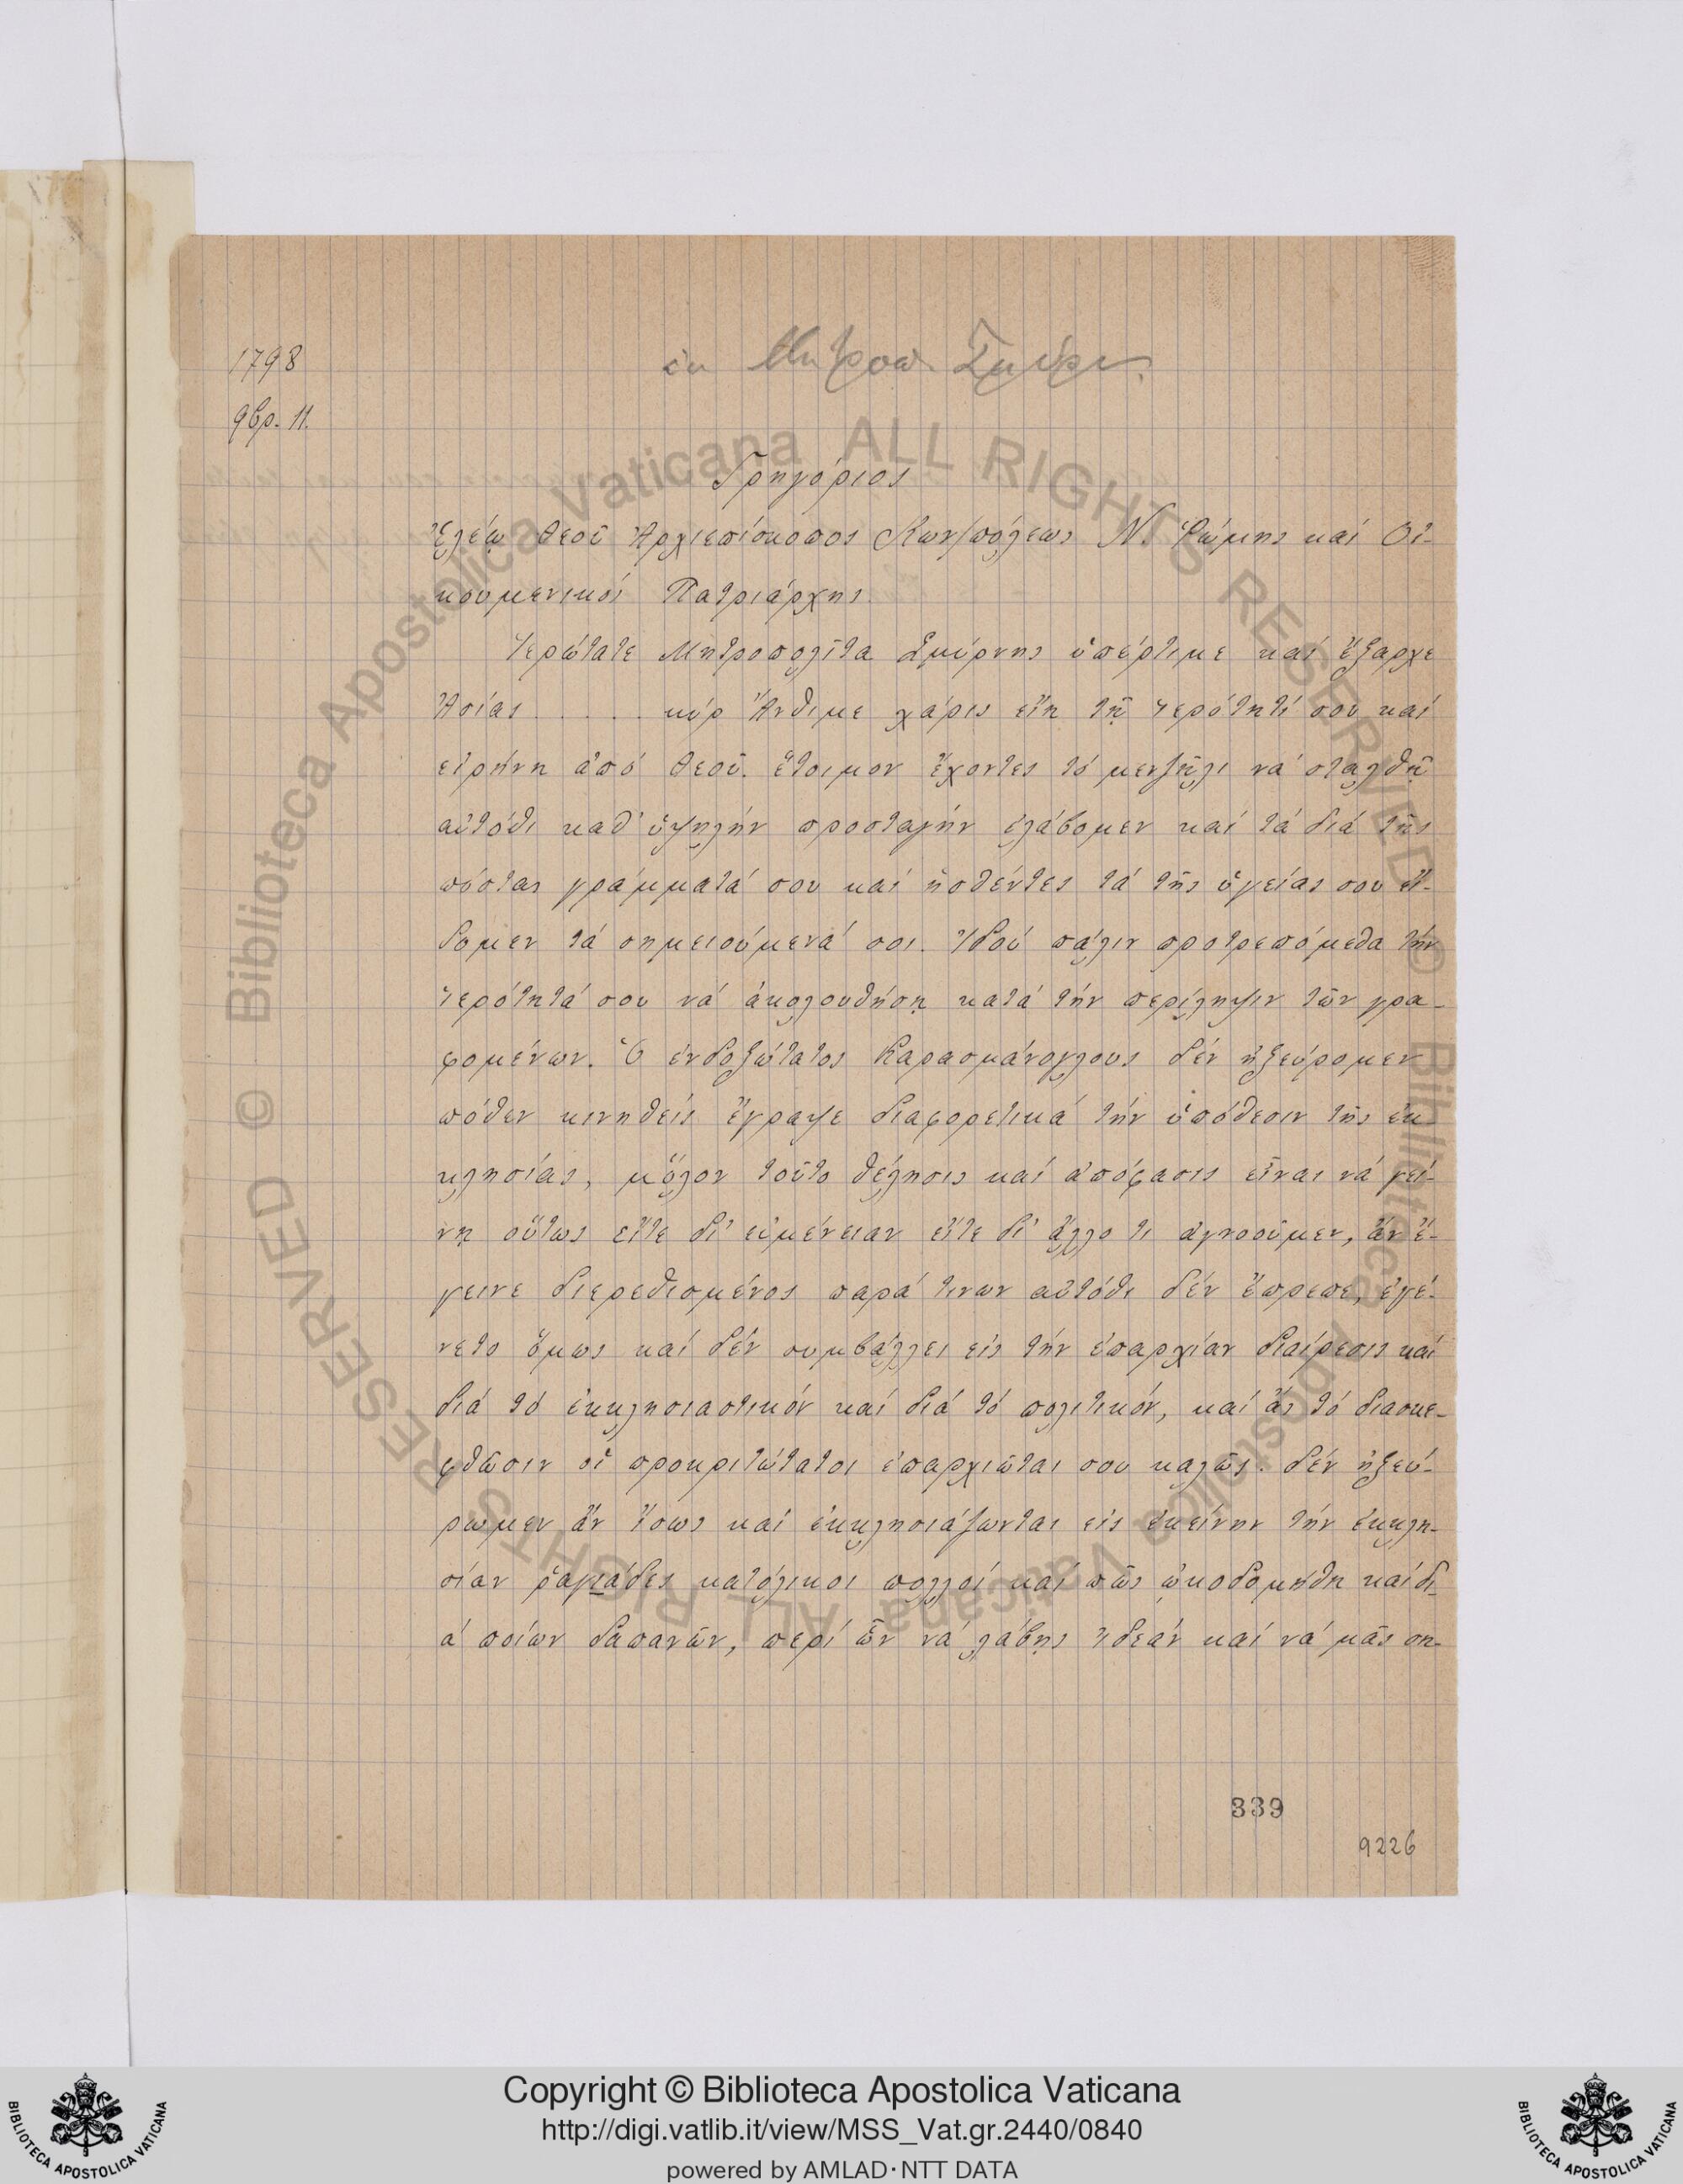 1798
9βρ. 11.
ἐκ Μητροπ. Σμύρν.
Γρηγόριος
Ἐλέῳ Θεοῦ Ἀρχιεπίσκοπος Κων/πόλεως Ν. Ῥώμης καί Οἰ-
κουμενικός Πατριάρχης.
Ἱερώτατε Μητροπολῖτα Σμύρνης ὑπέρτιμε καί ἔξαρχε
Ἀσίας . . . . . κύρ Ἄνθιμε χάρις εἴη τῇ ἱερότητί σου καί
εἰρήνη ἀπό Θεοῦ. ἕτοιμον ἔχοντες τό μενζῆλι νά σταλθῇ
αὐτόθι καθ' ὑψηλήν προσταγήν ἐλάβομεν καί τά διά τῆς
πόστας γράμματά σου καί ἡσθέντες τά τῆς ὑγείας σου εἴ-
δομεν τά σημειούμενά σοι. Ἰδού πάλιν προτρεπόμεθα τήν
ἱερότητά σου νά ἀκολουθήσῃ κατά τήν περίληψιν τῶν γρα-
φομένων. Ὁ ἐνδοξώτατος Καρασμάνογλους δέν ἠξεύρομεν
πόθεν κινηθείς ἔγραψε διαφορετικά τήν ὑπόθεσιν τῆς ἐκ-
κλησίας, μ' ὅλον τοῦτο θέλησις καί ἀπόφασις εἶναι νά γεί-
νῃ οὕτως εἴτε δι' εὐμένειαν εἴτε δι' ἄλλο τι ἀγνοοῦμεν, ἄν ἔ-
γεινε διερεθισμένος παρά τινων αὐτόθι δέν ἔπρεπε, ἐγέ-
νετο ὅμως καί δέν συμβάλλει εἰς τήν ἐπαρχίαν διαίρεσις καί
διά τό ἐκκλησιαστικόν καί διά τό πολιτικόν, καί ἄς τό διασκε-
φθῶσιν οἱ προκριτώτατοι ἐπαρχιῶται σου καλῶς. δέν ἠξεύ-
ρωμεν ἄν ἴσως καί ἐκκλησιάζωνται εἰς ἐκείνην τήν ἐκκλη-
σίαν ῥαγιάδες κατόλικοι πολλοί καί πῶς ᾠκοδομήθη καί δι-
ά ποίων δαπανῶν, περί ὧν νά λάβῃς ἰδεάν καί νά μᾶς ση-
339
9226
© Biblioteca Apostolica Vaticana ALL RIGHTS RESERVED
© Biblioteca Apostolica Vaticana ALL RIGHTS RESERVED
BIBLIOTECA APOSTOLICA VATICANA
Copyright © Biblioteca Apostolica Vaticana
http://digi.vatlib.it/view/MSS_Vat.gr.2440/0840
powered by AMLAD·NTT DATA
BIBLIOTECA APOSTOLICA VATICANA